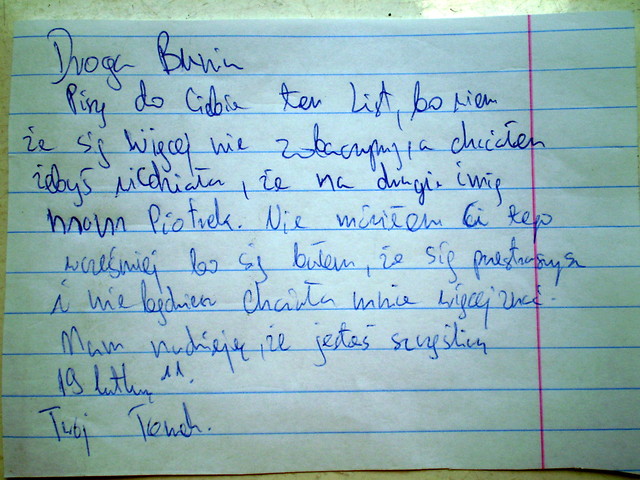 Droga Bunin
Piszę do Ciebie ten List, bo wiem
że się więcej nie zobaczymy, a chciałem
żebyś wiedziała, że na drugie imię
mam Piotrek. Nie mówiłem Ci tego
wcześniej bo się bałem, że się przestraszysz
i nie będziesz chciała mnie więcej znać.
Mam nadzieję, że jesteś szczęśliwa
19 11.
Twój Tomek.